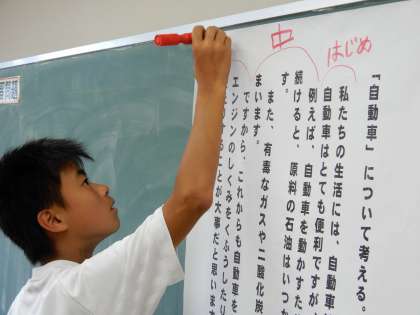 はじめ
中
「自動車」について考える。
私たちの生活には、自動車
自動車はとても便利ですが、
例えば、自動車を動かすた
続けると、原料の石油はいつか
す。
また、有毒なガスや二酸化炭
まいます。
ですから、これからも自動車を
エンジンのしくみをくふうしたり
することが大事だと思います